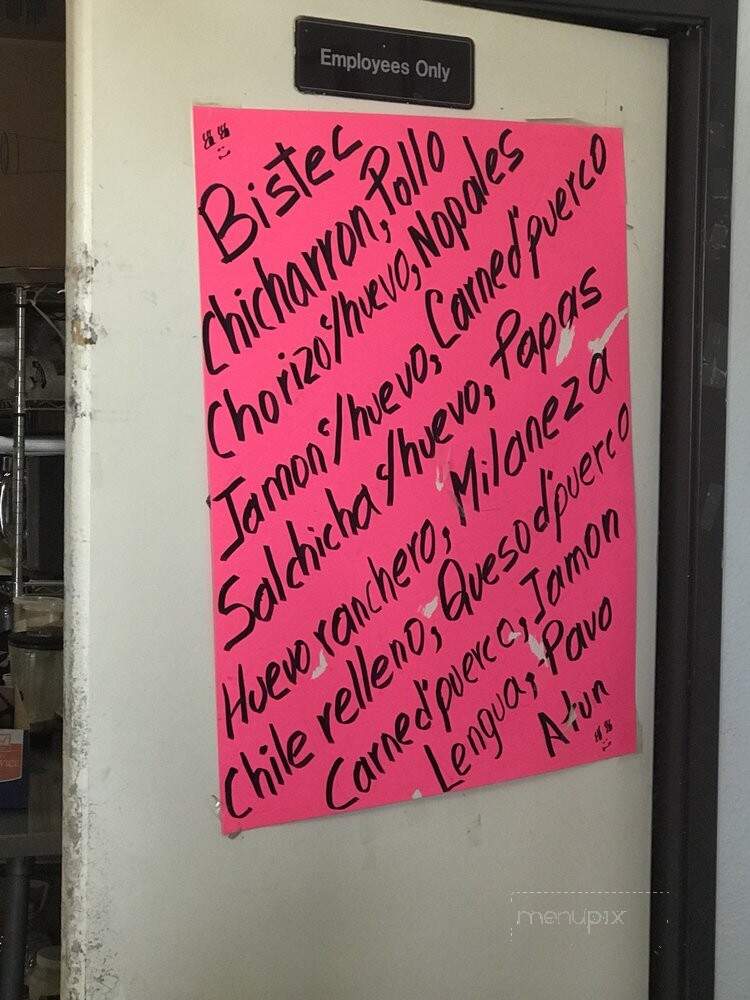 Employees Only
Bistec
Chicharron, Pollo
Chorizo c/huevo, Nopales
Jamon c/huevo, Carne d' puerco
Salchicha c/huevo, Papas
Huevo ranchero, Milaneza
Chile relleno, Queso d' puerco
Carne d' puerco, Jamon
Lengua, Pavo
Atun
menupix